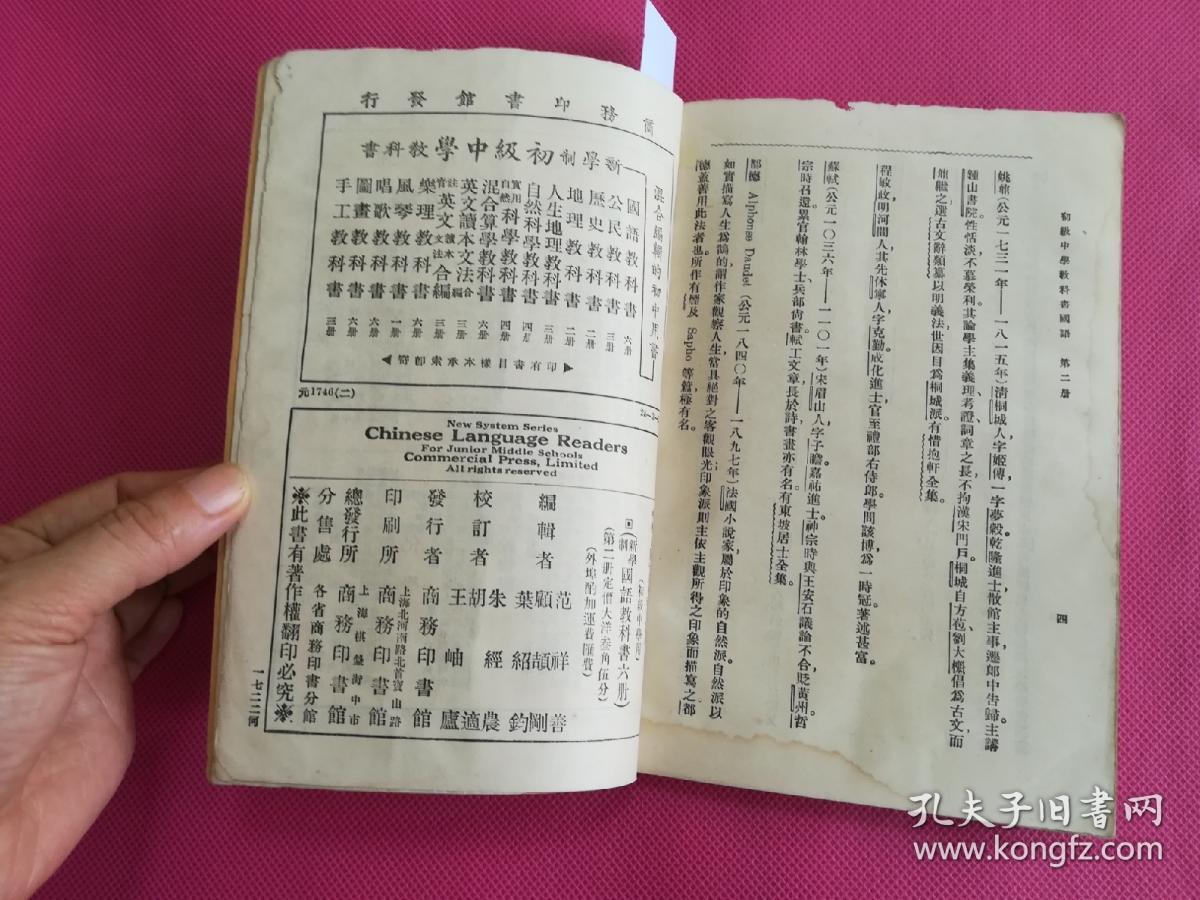 初級中學教科書國語 第二册
四
姚鼐(公元一七三一年——一八一五年)清桐城人字姬傳一字夢穀乾隆進士散館主事遷郎中告歸主講
鍾山書院。性恬淡不慕榮利其論學主集義理考證詞章之長不拘漢宋門戶。桐城自方苞劉大櫆倡爲古文而
鼐繼之選古文辭類纂以明義法世因目爲桐城派。有惜抱軒全集。
程敏政明河間人其先休寧人字克勤。成化進士官至禮部右侍郎學問該博爲一時冠著述甚富。
蘇軾(公元一〇三六年——一一〇一年)宋眉山人字子瞻嘉祐進士神宗時與王安石議論不合貶黃州哲
宗時召還累官翰林學士兵部尚書。軾工文章長於詩書畫亦有名。有東坡居士全集。
都德 Alphonse Daudet (公元一八四〇年——一八九七年)法國小說家屬於印象的自然派。自然派以
如實描寫人生爲鵠的謂作家觀察人生當具絕對之客觀眼光印象派則主依主觀所得之印象而描寫之都
德蓋善用此法者也所作有 及 Sapho 等篇極有名。
商務印書館發行
新學制初級中學教科書
混合編輯的初中用書
國語教科書 六册
公民教科書 三册
歷史教科書 二册
地理教科書 二册
人生地理教科書 三册
自然科學教科書 四册
實用自然科學教科書 四册
混合算學教科書 六册
英文讀本文法合編 三册
註音英文讀本文法合編 三册
樂理教科書 六册
風琴教科書 一册
唱歌教科書 六册
圖畫教科書 六册
手工教科書 三册
◀印有書目樣本承索卽寄▶
元1746(二)
New System Series
Chinese Language Readers
For Junior Middle Schools
Commercial Press, Limited
All rights reserved
(新學制)國語教科書六册
(第二册定價大洋叁角伍分)
(外埠酌加運費匯費)
編輯者 范祥善 顧頡剛 葉紹鈞
校訂者 朱經農 胡適 王岫廬
發行者 商務印書館
印刷所 上海北河南路北首寶山路 商務印書館
總發行所 上海棋盤街中市 商務印書館
分售處 各省商務印書分館
※此書有著作權翻印必究※
一七二二河
孔夫子旧书网
www.kongfz.com